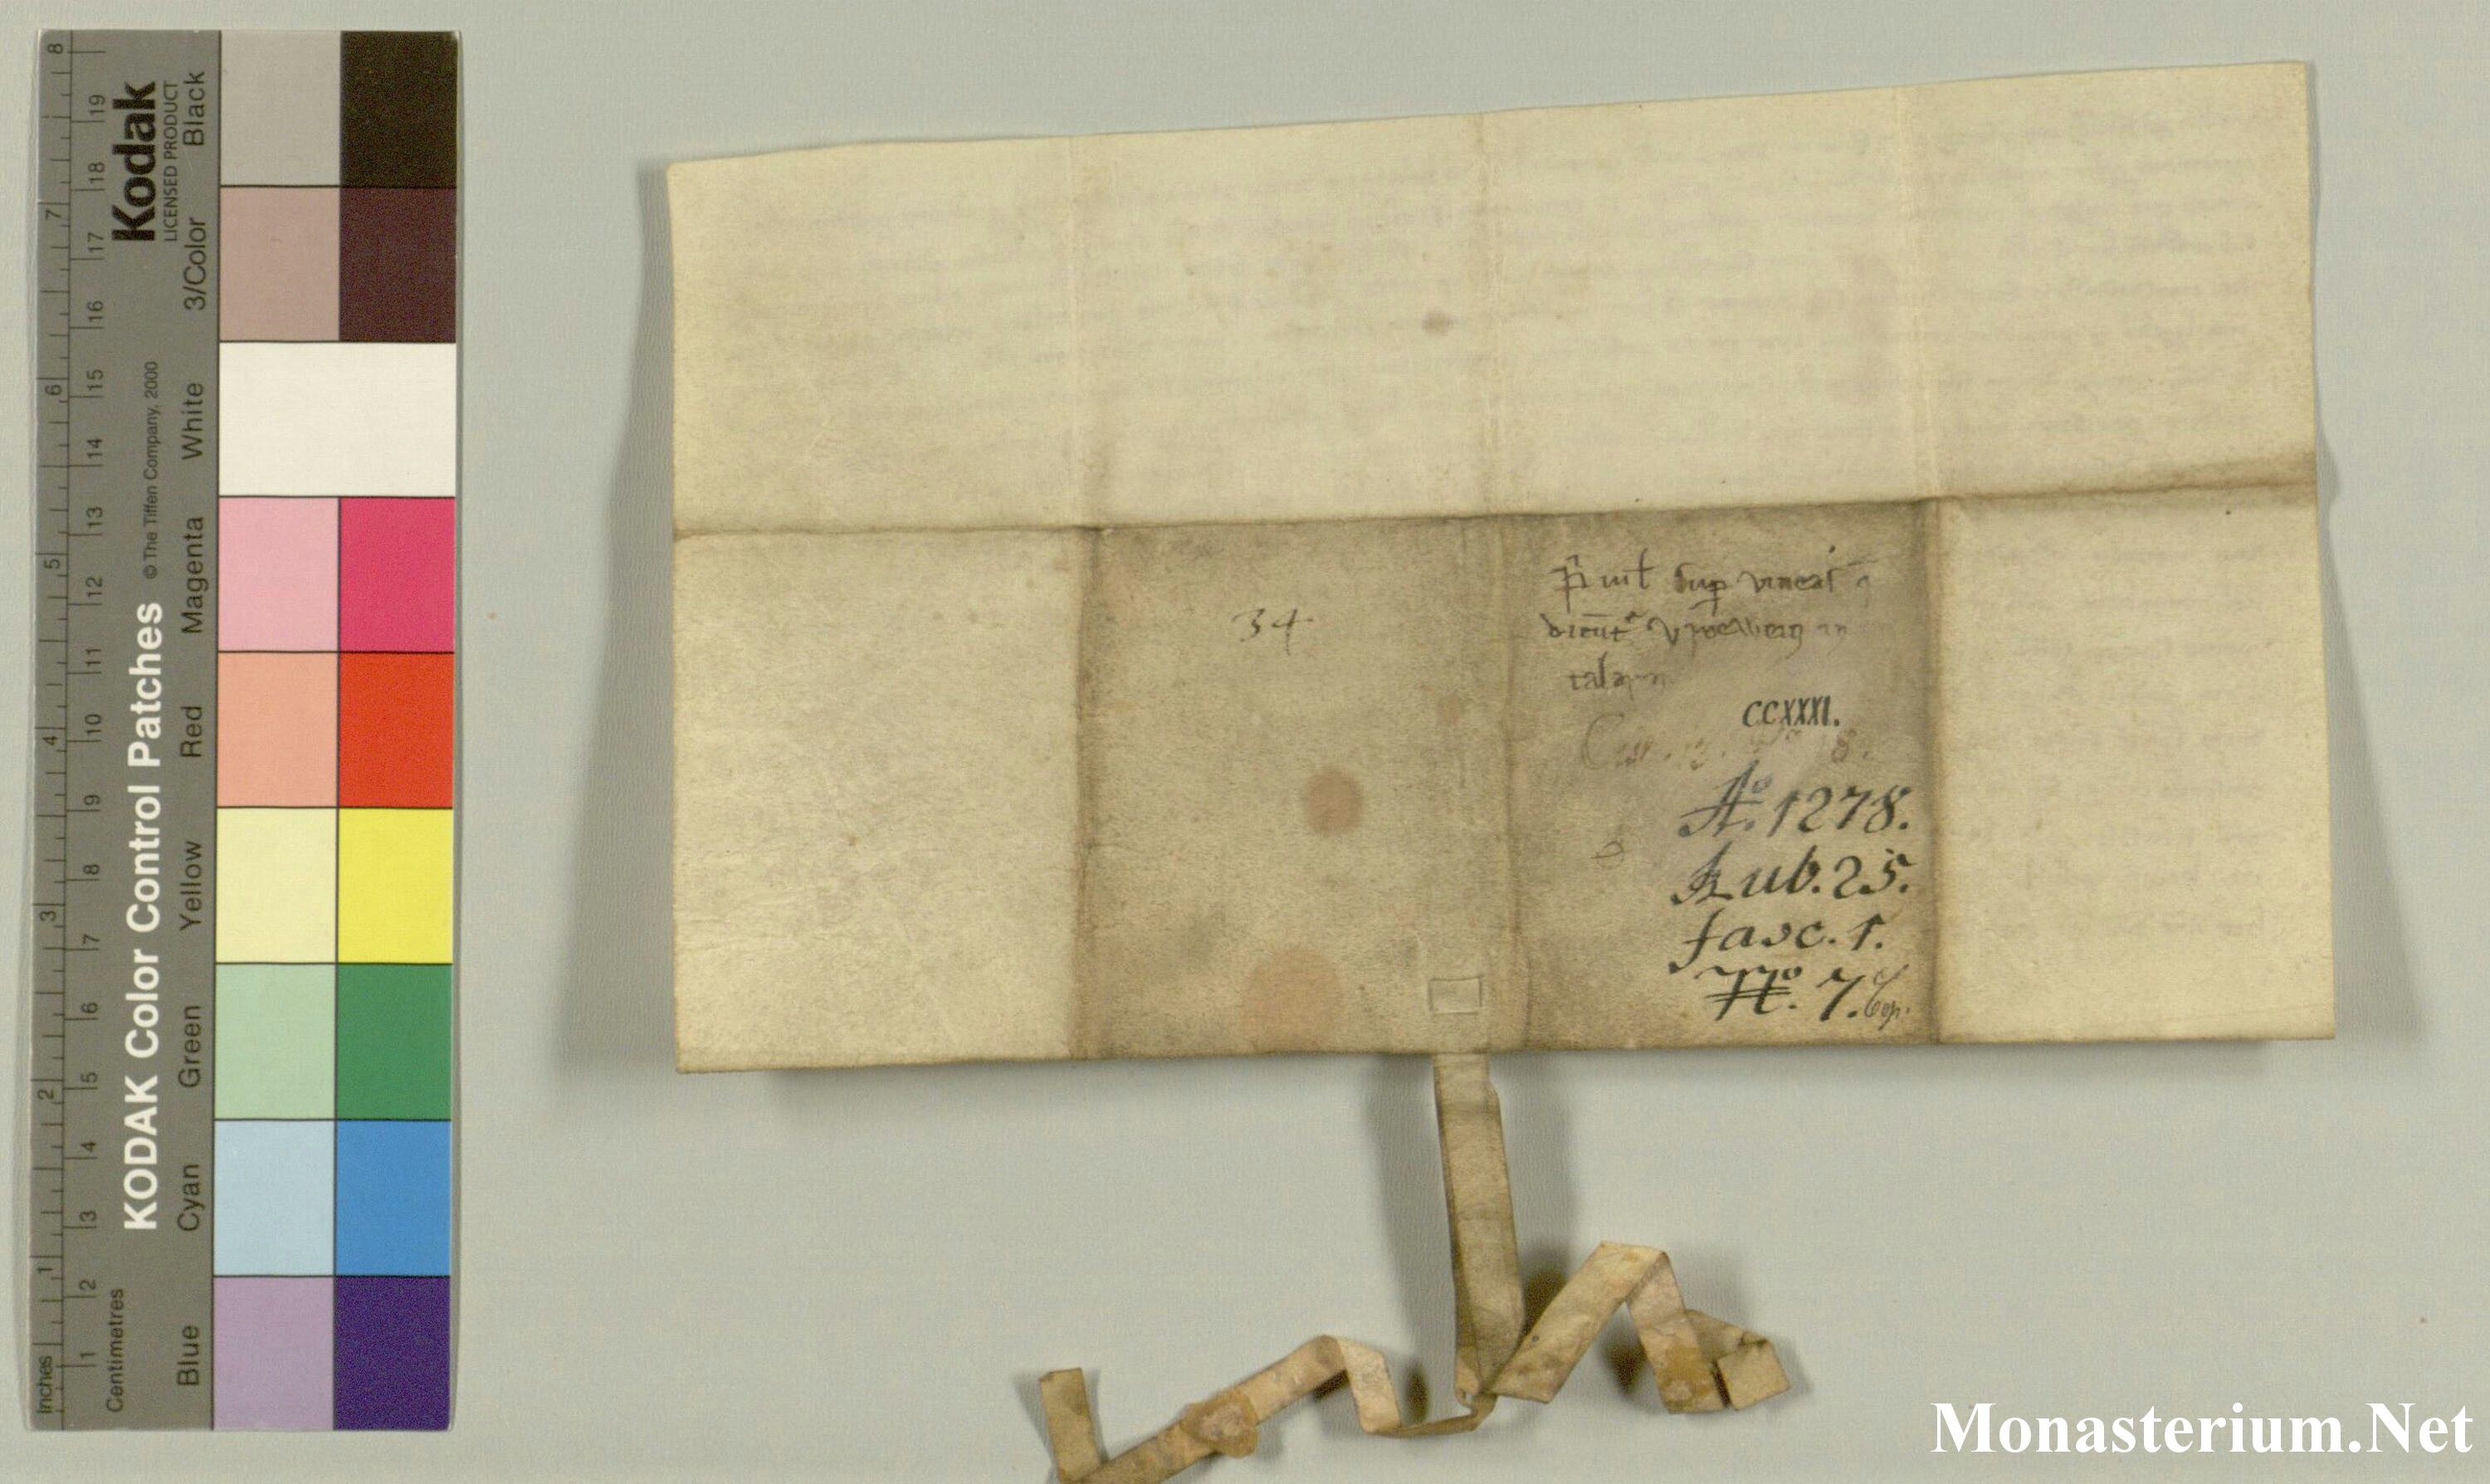 KODAK Color Control Patches
Kodak
LICENSED PRODUCT
© The Tiffen Company, 2000
Inches
Centimetres
1 2 3 4 5 6 7 8
1 2 3 4 5 6 7 8 9 10 11 12 13 14 15 16 17 18 19
Blue
Cyan
Green
Yellow
Red
Magenta
White
3/Color
Black
34
sup vineas
in
CCXXXI.
8.
Aº. 1278.
Rub. 25.
fasc. 1.
Nº. 7. Cop.
Monasterium.Net